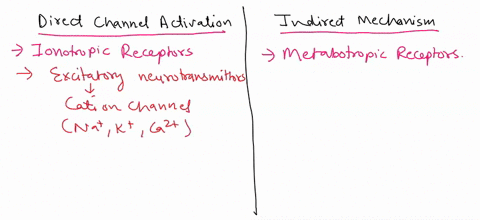 Direct Channel Activation
→ Ionotropic Receptors
→ Excitatory neurotransmittors
↓
Cation channel
(Na⁺, K⁺, Ca²⁺)
Indirect Mechanism
→ Metabotropic Receptors.